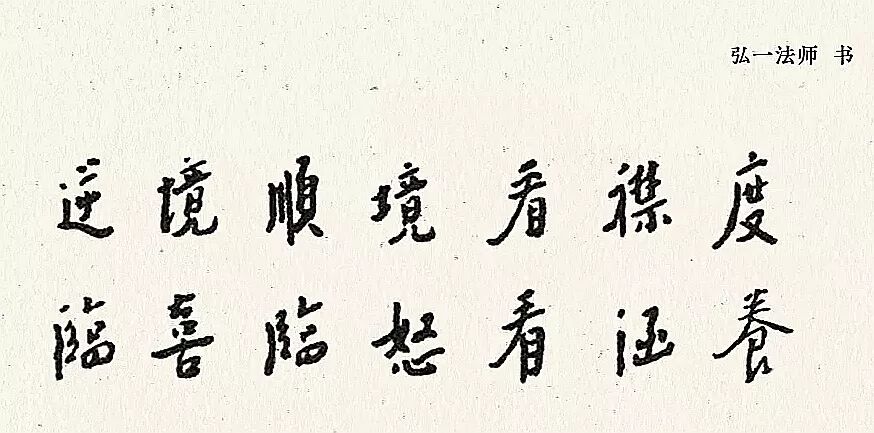 弘一法师 书
逆境順境看襟度
臨喜臨怒看涵養